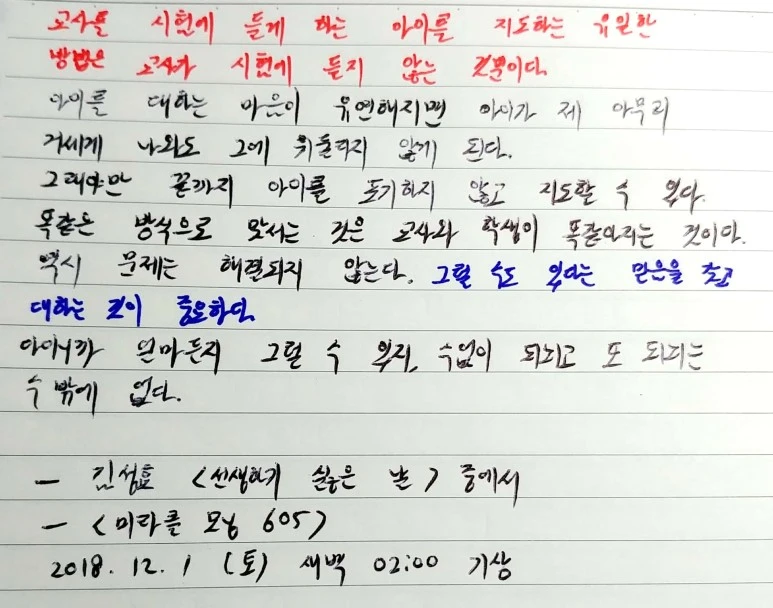 교사를 시험에 들게 하는 아이를 지도하는 유일한
방법은 교사가 시험에 들지 않는 것뿐이다.
아이를 대하는 마음이 유연해지면 아이가 제 아무리
거세게 나와도 그에 휘둘리지 않게 된다.
그래야만 끝까지 아이를 포기하지 않고 지도할 수 있다.
똑같은 방식으로 맞서는 것은 교사와 학생이 똑같아지는 것이다.
역시 문제는 해결되지 않는다. 그럴 수도 있다는 믿음을 갖고
대하는 것이 중요하다.
아이니까 얼마든지 그럴 수 있지, 수없이 되뇌고 또 되뇌는
수 밖에 없다.
- 김성효 <선생하기 싫은 날> 중에서
- <미라클 모닝 605>
2018. 12. 1 (토) 새벽 02:00 기상